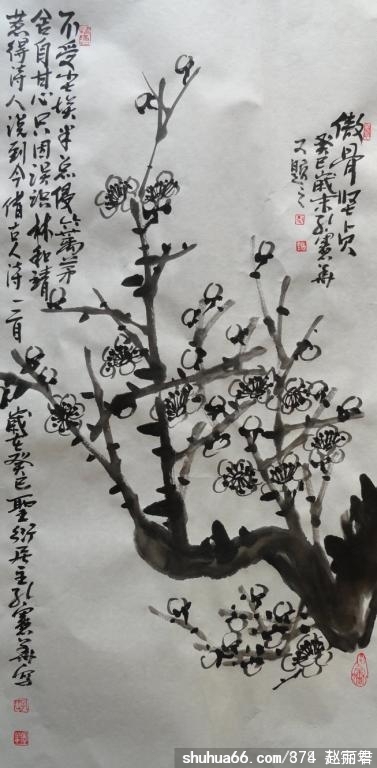 傲骨坚贞
癸巳歲末孔憲華
又題之
不受尘埃半点侵竹篱茅
舍自甘心只因误识林和靖
惹得诗人说到今借古人诗一首 歲在癸巳聖衍居主孔憲華写
shuhua66.com/374 赵丽